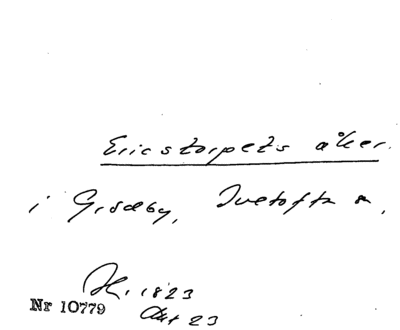 Ericstorpets åker.
i Grödby, Ivetofta s.
H. 1823
Nr 10779
Akt 23